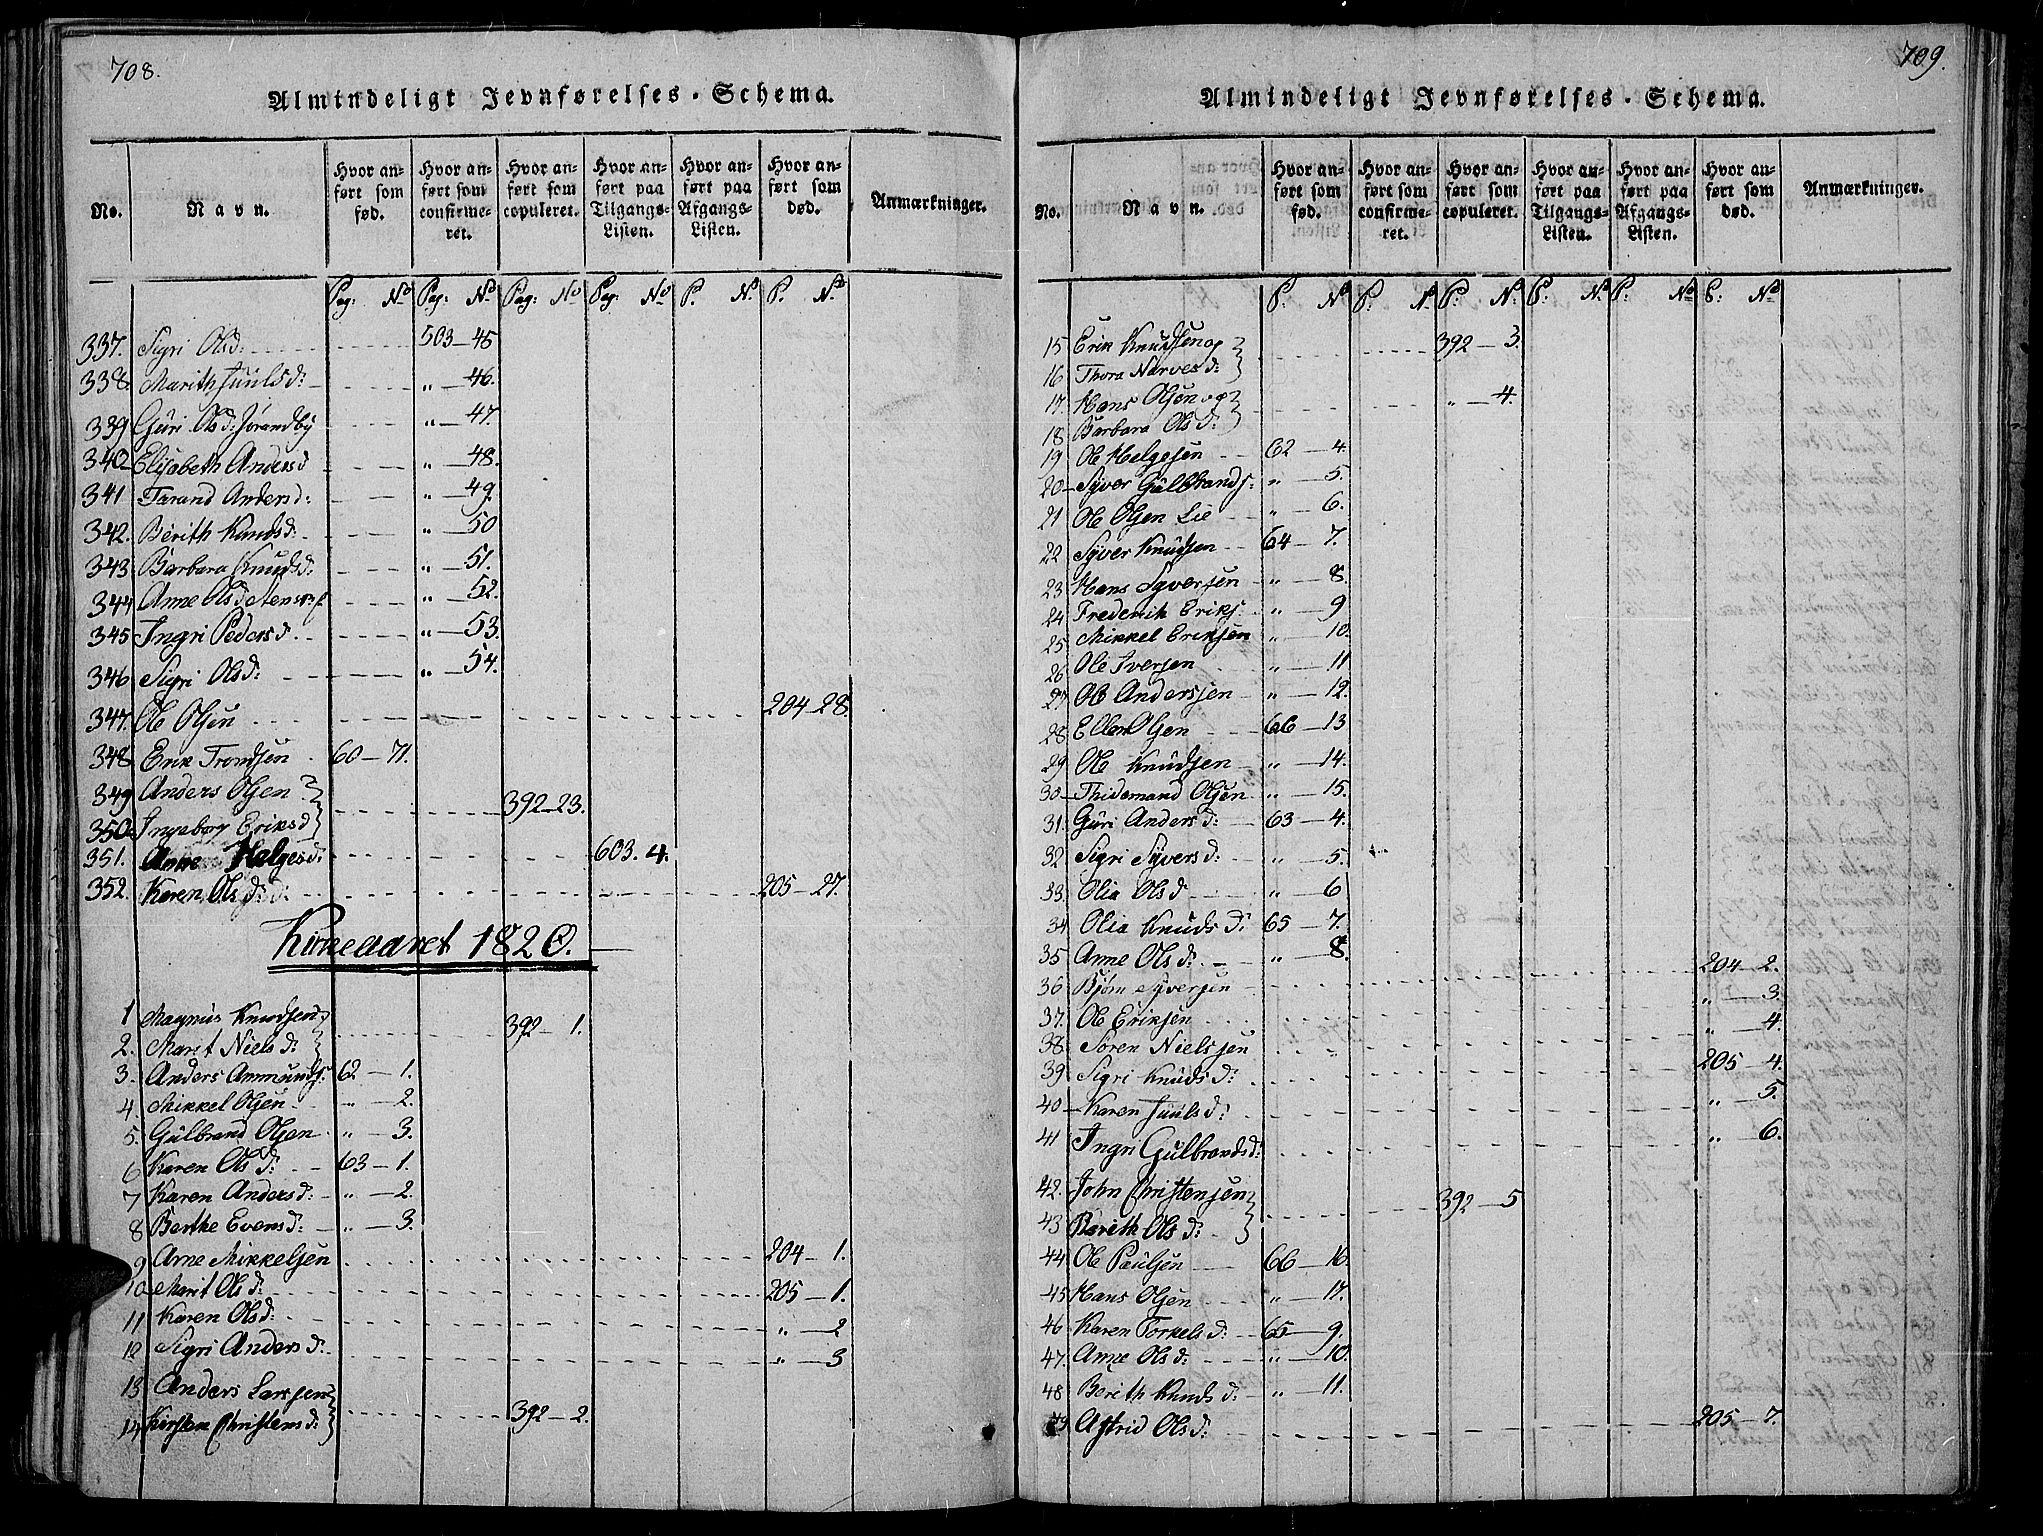 708.
Almindeligt Jevnførelses-Schema.
No. Navn. Hvor anført som fød. Hvor anført som confirmeret. Hvor anført som copuleret. Hvor anført paa Tilgangs-Listen. Hvor anført paa Afgangs-Listen. Hvor anført som død. Anmærkninger.
Pag: No Pag: No Pag: No Pag: No P. N. P. No
337. Sigri Olsd. 503-45
338. Marith Juulsd: " -46.
339 Guri Olsd: Jørandby " -47.
340 Elisabeth Andersd " -48.
341 Tarand Andersd: " -49.
342. Berith Knudsd: " -50
343 Barbara Knudsd: " -51.
344 Anne Olsd " -52.
345 Ingri Pedersd. " -53.
346 Sigri Olsd: " -54.
347. Ole Olsen 204-28.
348. Erik Trondsen 60-71.
349 Anders Olsen
350. Ingeborg Eriksd 392-23.
351. Anne Helgesd: 603. 4.
352. Karen Olsd: 205-27.
Kirkeaaret 1820.
1 Magnus Knudsen
2. Marit Nielsd: 392-1.
3. Anders Ammunds: 62-1.
4 Mikkel Olsen " -2.
5. Gulbrand Olsen " -3.
6 Karen Olsd: 63-1.
7 Karen Andersd: " -2.
8 Berthe Evensd: " -3.
9 Arne Mikkelsen 204-1.
10 Marit Olsd: 205-1.
11 Karen Olsd: " -2
12 Sigri Andersd: " -3
13 Anders Larssen
14 Kirsten Christensd: 392-2.
709.
Almindeligt Jevnførelses-Schema.
No. Navn. Hvor anført som fød. Hvor anført som confirmeret. Hvor anført som copuleret. Hvor anført paa Tilgangs-Listen. Hvor anført paa Afgangs-Listen. Hvor anført som død. Anmærkninger.
P. No P. No P. N. P. No P. No P. No
15 Erik Knudsen og
16 Thora Narvesd: 392-3.
17. Hans Olsen og
18 Barbara Olsd: " -4.
19 Ole Helgesen 62-4.
20 Syver Gulbrands: " -5.
21 Ole Olsen Lie " -6.
22 Syver Knudsen 64-7.
23 Hans Syversen " -8.
24 Frederik Eriks: " -9
25 Mikkel Eriksen " -10.
26 Ole Iversen " -11
27 Ole Anderssen " -12.
28 Ellen Olsen 66-13
29 Ole Knudsen " -14.
30 Thidemand Olsen " -15.
31. Guri Andersd: 63-4.
32 Sigri Syversd: " -5.
33. Olia Olsd " -6
34 Olia Knudsd: 65-7.
35 Anne Olsd: " -8.
36 Bjørn Syversen 204-2.
37. Ole Eriksen " -3.
38 Søren Nielssen " -4.
39 Sigri Knudsd: 205-4.
40 Karen Juulsd: " -5.
41 Ingri Gulbrandsd: " -6.
42. John Christensen
43 Berith Olsd: 392-5
44 Ole Paulsen 66-16.
45 Hans Olsen " -17.
46 Karen Torkelsd: 65-9.
47. Anne Olsd: " -10.
48 Berith Knudsd: " -11.
49 Astrid Olsd: 205-7.